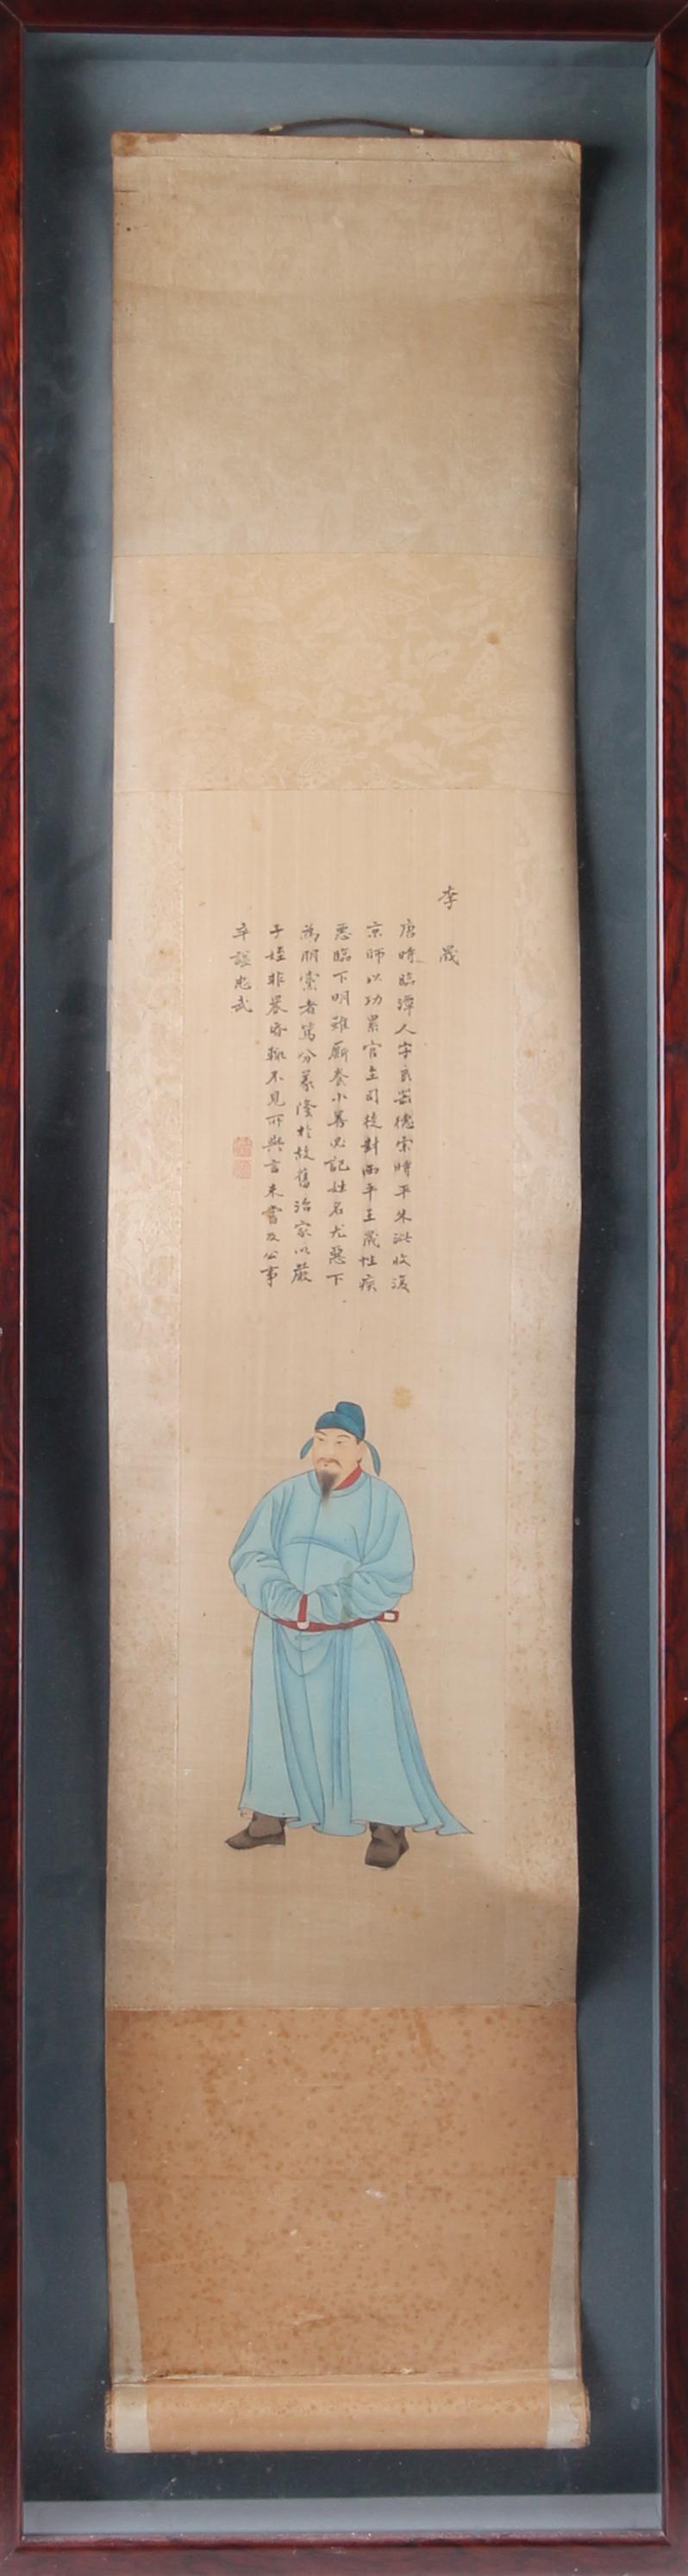 李晟
唐時臨潭人字良器德宗時平朱泚收復
京師以功累官至司徒封西平王晟性疾
惡臨下明雖厮養小善必記姓名尤惡下
為朋黨者篤分義隆於故舊治家以嚴
子姪非晨昏輒不見所與言未嘗及公事
卒謚忠武